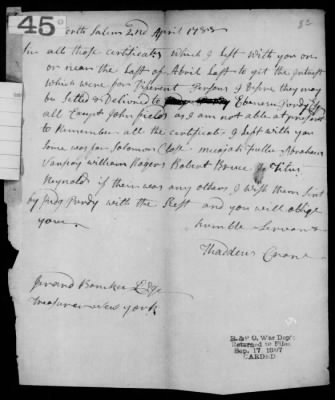 45
North Salem 2nd April 1788
Sir all those certificates which I Left with you on
or near the Last of Abril Last to git the Intrest
which were for Different Persons I Desire they may
be Setled & Delivered to Ebenezer Purdy Esqr
all Except John fields as I am not able at present
to Remember all the certificate I Left with you
Some was for Solomon Close micajah fuller Abraham
Vanscoy william Rogers Robert Bruce Titus
Reynolds if there was any others I wish them Sent
by Judg Purdy with the Rest and you will oblige
your humble Servant
Thaddeus Crane
Gerard Bancker Esqr
treasurer New york
R. & P. O. War Dep't
Returned to Files
Sep. 17 1897
CARDED